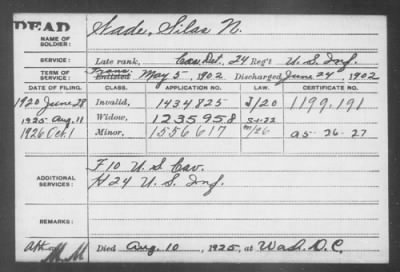 DEAD
NAME OF SOLDIER: Wade, Silas N.
SERVICE: Late rank, Cav. Det., 24 Reg't U. S. Inf.
TERM OF SERVICE: Trans. Enlisted May 5, 1902 Discharged June 24, 1902
DATE OF FILING. CLASS. APPLICATION NUMBER. LAW. CERTIFICATE NUMBER.
1920 June 28 Invalid, 1434825 1199,191
1925 Aug. 11 Widow, 1235958 5-1-22
1926 Oct. 1 Minor, 1556617 5/1/26 a5-26-27
ADDITIONAL SERVICES: F 10 U. S. Cav.
H 24 U. S. Inf.
REMARKS:
M. M. Died Aug. 10, 1925, at Wash. D. C.